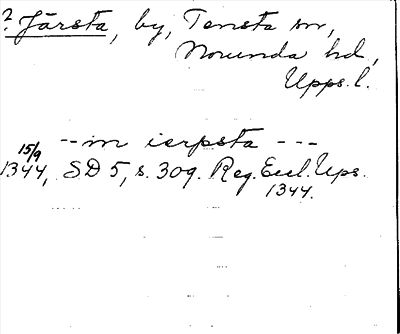 ? Järsta, by, Tensta sn,
Norunda hd,
Upps. l.
--m ierpsta ---
15/9
1344, SD 5, s. 309. Reg. Eccl. Ups.
1344.